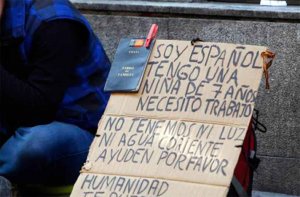 SOY ESPAÑOL
TENGO UNA
NIÑA DE 7 AÑOS
NECESITO TRABAJO
NO TENEMOS NI LUZ
NI AGUA CORIENTE
AYUDEN POR FAVOR
HUMANIDAD
LIBRO DE
FAMILIA